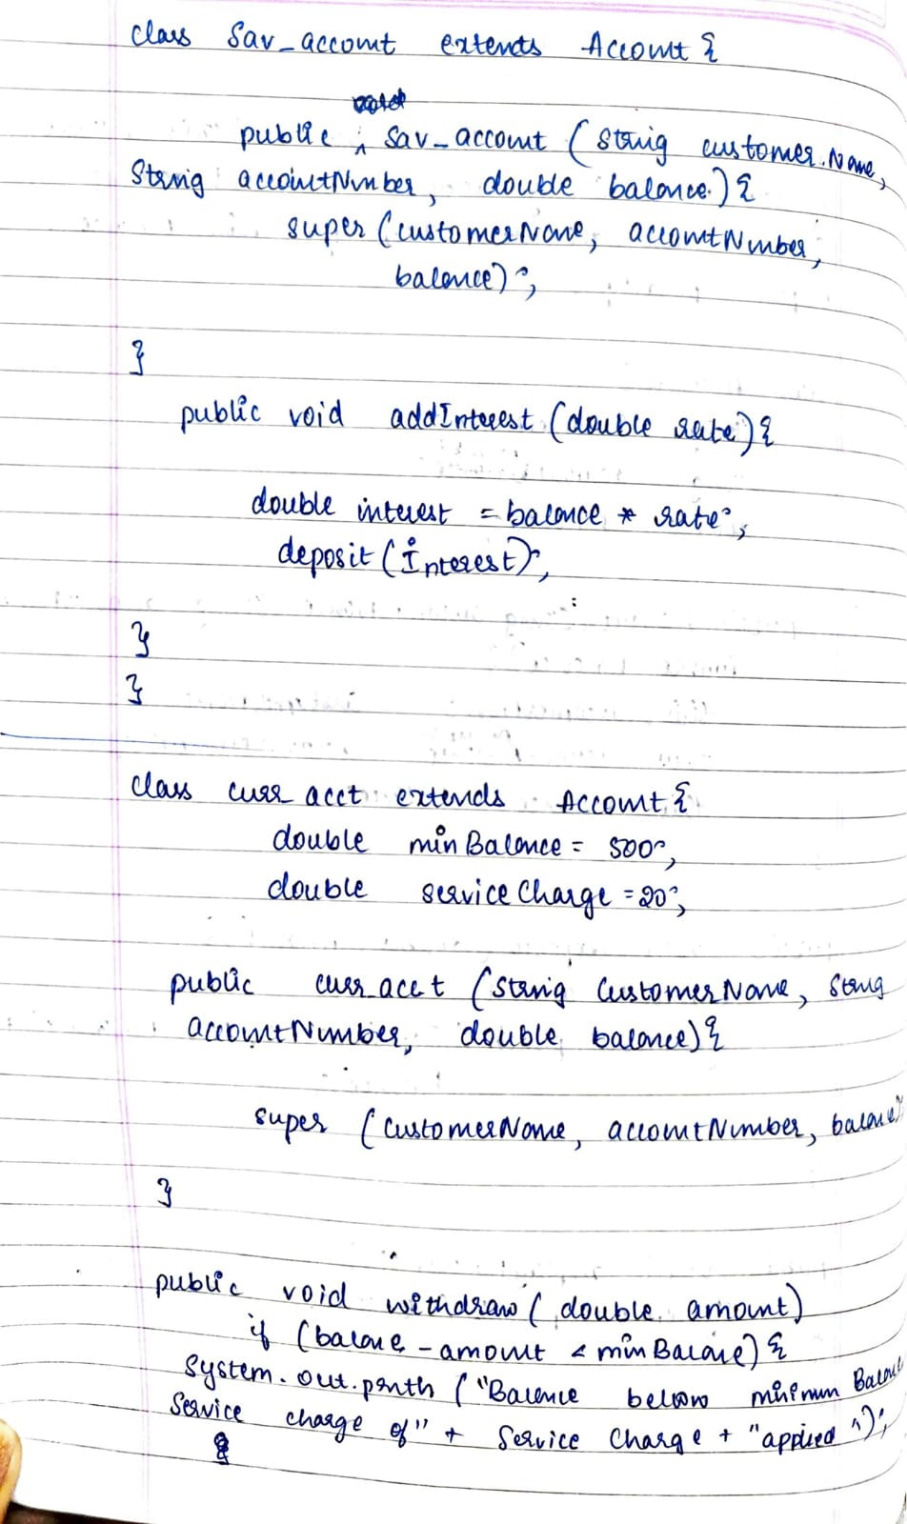 class Sav_account extends Account {
public ^ Sav_account (String customerName,
String accountNumber, double balance) {
super (customerName, accountNumber,
balance);
}
public void addInterest (double rate) {
double interest = balance * rate;
deposit (Interest);
}
}
class curr_acct extends Account {
double minBalance = 500;
double serviceCharge = 20;
public curr_acct (String CustomerName, String
accountNumber, double balance) {
super (CustomerName, accountNumber, balance)
}
public void withdraw (double amount)
if (balance - amount < minBalance) {
System.out.println ("Balance below minimum Balance
Service charge of" + Service Charge + "applied");
}